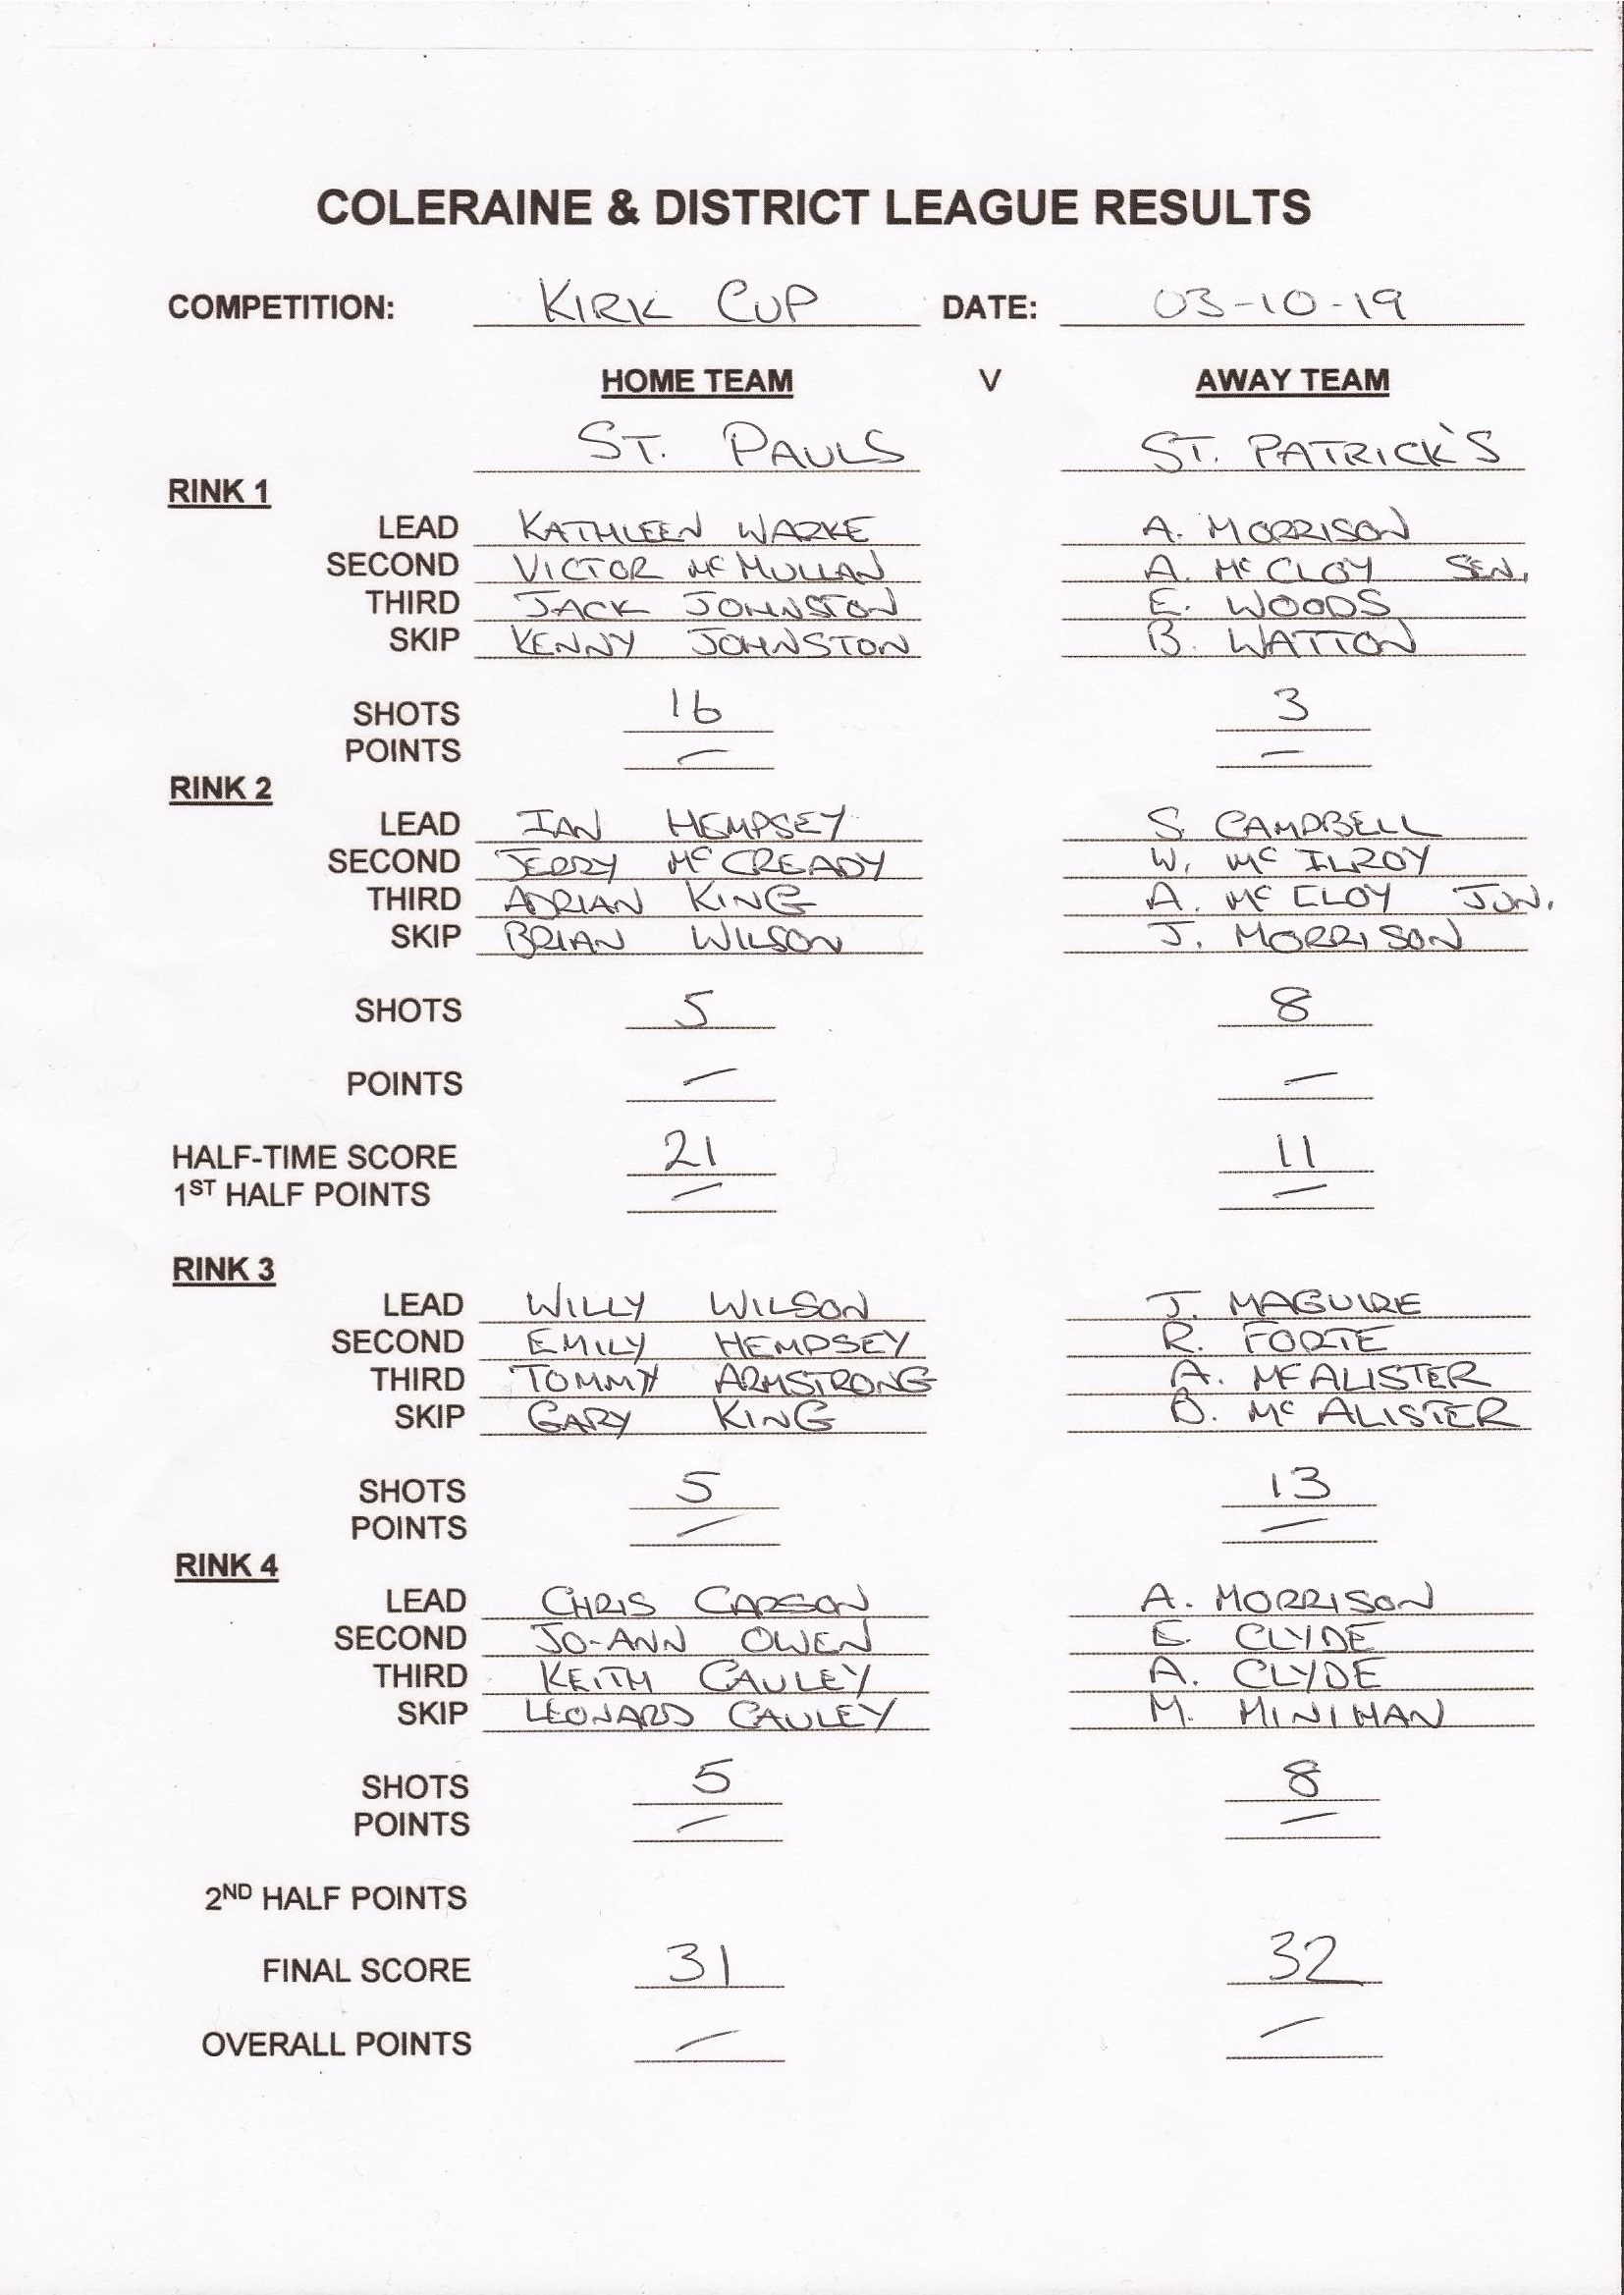 COLERAINE & DISTRICT LEAGUE RESULTS
COMPETITION: KIRK CUP DATE: 03-10-19
HOME TEAM V AWAY TEAM
ST. PAULS ST. PATRICK'S
RINK 1
LEAD KATHLEEN WARKE A. MORRISON
SECOND VICTOR McMULLAN A. McCLOY SEN.
THIRD JACK JOHNSTON E. WOODS
SKIP KENNY JOHNSTON B. WATTON
SHOTS 16 3
POINTS — —
RINK 2
LEAD IAN HEMPSEY S. CAMPBELL
SECOND JERRY McCREADY W. McILROY
THIRD ADRIAN KING A. McCLOY JUN.
SKIP BRIAN WILSON J. MORRISON
SHOTS 5 8
POINTS — —
HALF-TIME SCORE 21 11
1ST HALF POINTS — —
RINK 3
LEAD WILLY WILSON J. MAGUIRE
SECOND EMILY HEMPSEY R. FORTE
THIRD TOMMY ARMSTRONG A. McALISTER
SKIP GARY KING D. McALISTER
SHOTS 5 13
POINTS — —
RINK 4
LEAD CHRIS CARSON A. MORRISON
SECOND JO-ANN OWEN E. CLYDE
THIRD KEITH CAULEY A. CLYDE
SKIP LEONARD CAULEY M. MINIHAN
SHOTS 5 8
POINTS — —
2ND HALF POINTS
FINAL SCORE 31 32
OVERALL POINTS — —